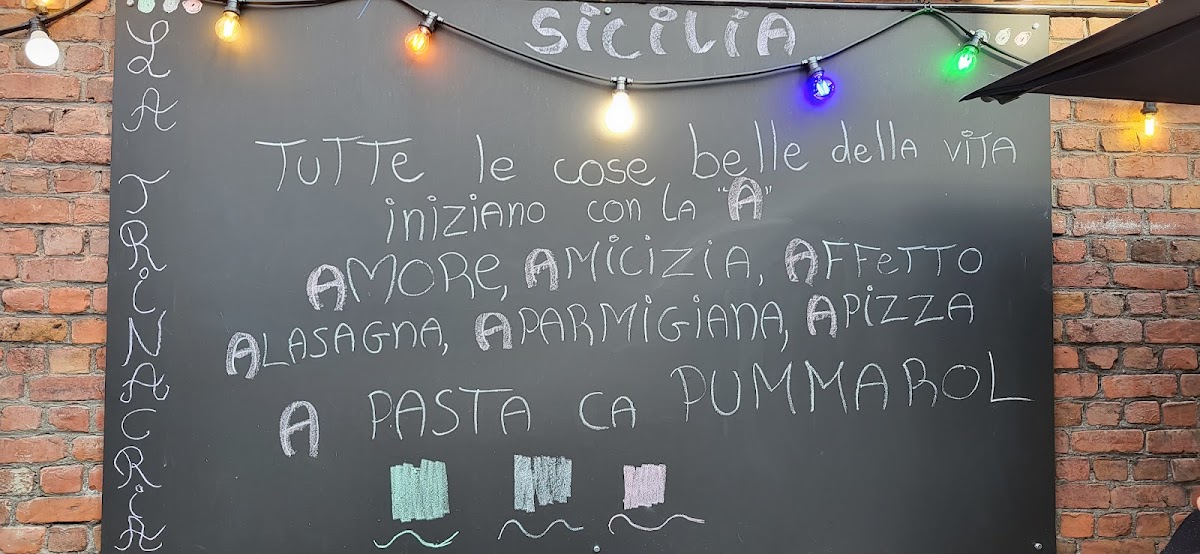 SiCiLiA
LA TRiNACRiA
TUTTe le cose belle della viTA
iniziANO con lA "A"
AMORe, AMiCiZiA, AFFeTTO
ALASAGNA, APARMiGiANA, APiZZA
A PASTA CA PUMMAROL